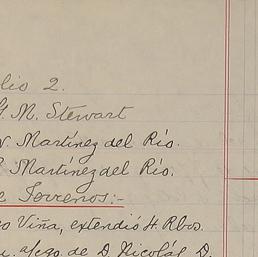 lio 2.
M. Stewart
Martínez del Río.
Martínez del Río.
Terrenos:-
Viña, extendió H. Rbos.
de D. Nicolás D.